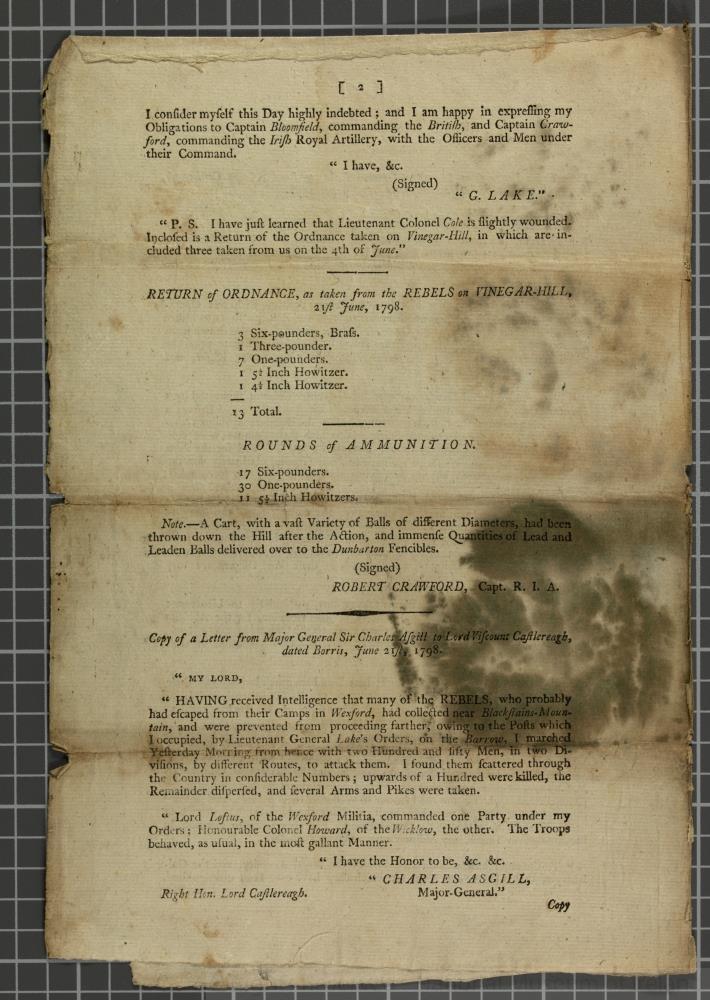 [ 2 ]
I conſider myſelf this Day highly indebted ; and I am happy in expreſſing my
Obligations to Captain Bloomfield, commanding the Britiſh, and Captain Craw-
ford, commanding the Iriſh Royal Artillery, with the Officers and Men under
their Command.
“ I have, &c.
(Signed)
“ G. LAKE.”
“ P. S. I have juſt learned that Lieutenant Colonel Cole is ſlightly wounded.
Incloſed is a Return of the Ordnance taken on Vinegar-Hill, in which are in-
cluded three taken from us on the 4th of June.”
RETURN of ORDNANCE, as taken from the REBELS on VINEGAR-HILL,
21ſt June, 1798.
3 Six-pounders, Braſs.
1 Three-pounder.
7 One-pounders.
1 5½ Inch Howitzer.
1 4½ Inch Howitzer.
13 Total.
ROUNDS of AMMUNITION.
17 Six-pounders.
30 One-pounders.
11 5½ Inch Howitzers.
Note.—A Cart, with a vaſt Variety of Balls of different Diameters, had been
thrown down the Hill after the Action, and immenſe Quantities of Lead and
Leaden Balls delivered over to the Dunbarton Fencibles.
(Signed)
ROBERT CRAWFORD, Capt. R. I. A.
Copy of a Letter from Major General Sir Charles Aſgill to Lord Viſcount Caſtlereagh,
dated Borris, June 21ſt, 1798.
“ MY LORD,
“ HAVING received Intelligence that many of the REBELS, who probably
had eſcaped from their Camps in Wexford, had collected near Blackſtairs-Moun-
tain, and were prevented from proceeding farther, owing to the Poſts which
I occupied, by Lieutenant General Lake's Orders, on the Barrow, I marched
Yeſterday Morning from hence with two Hundred and fifty Men, in two Di-
viſions, by different Routes, to attack them. I found them ſcattered through
the Country in conſiderable Numbers ; upwards of a Hundred were killed, the
Remainder diſperſed, and ſeveral Arms and Pikes were taken.
“ Lord Loftus, of the Wexford Militia, commanded one Party under my
Orders ; Honourable Colonel Howard, of the Wicklow, the other. The Troops
behaved, as uſual, in the moſt gallant Manner.
“ I have the Honor to be, &c. &c.
“ CHARLES ASGILL,
Right Hon. Lord Caſtlereagh. Major-General.”
Copy